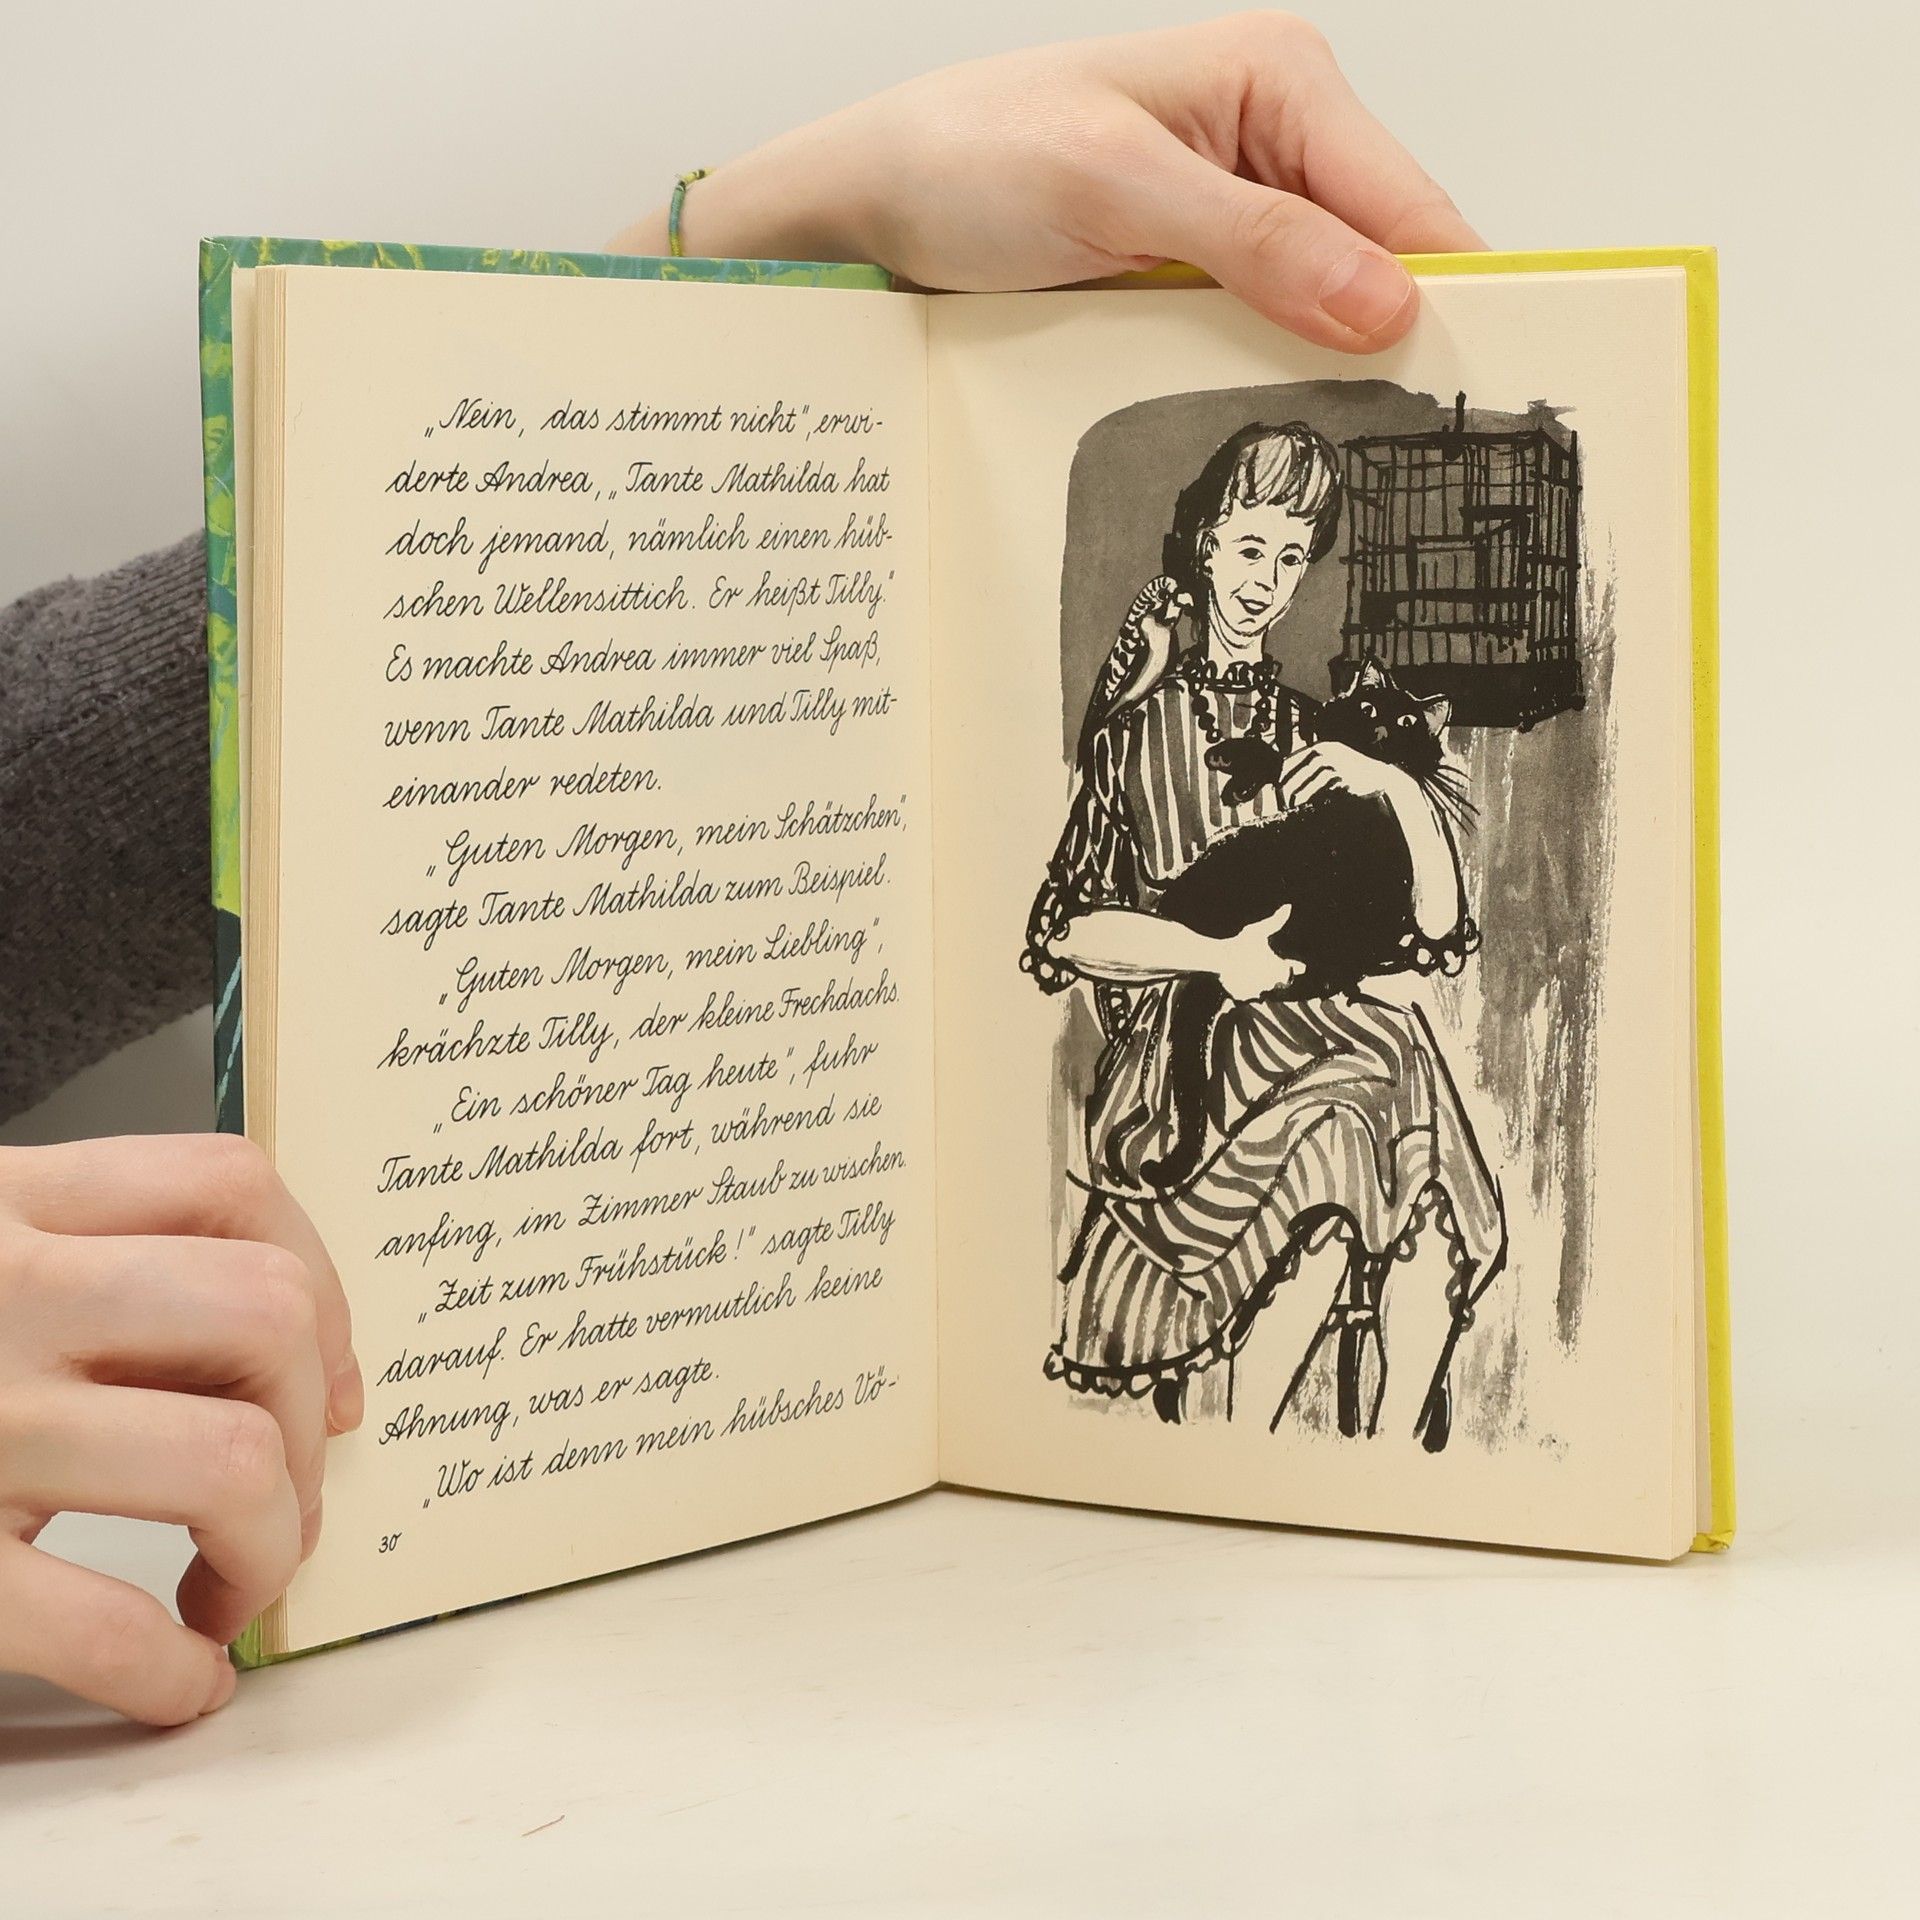 „Nein, das stimmt nicht", erwi-
derte Andrea, „Tante Mathilda hat
doch jemand, nämlich einen hüb-
schen Wellensittich. Er heißt Tilly."
Es machte Andrea immer viel Spaß,
wenn Tante Mathilda und Tilly mit-
einander redeten.
„Guten Morgen, mein Schätzchen",
sagte Tante Mathilda zum Beispiel.
„Guten Morgen, mein Liebling",
krächzte Tilly, der kleine Frechdachs.
„Ein schöner Tag heute", fuhr
Tante Mathilda fort, während sie
anfing, im Zimmer Staub zu wischen.
„Zeit zum Frühstück!" sagte Tilly
darauf. Er hatte vermutlich keine
Ahnung, was er sagte.
„Wo ist denn mein hübsches Vö-
30